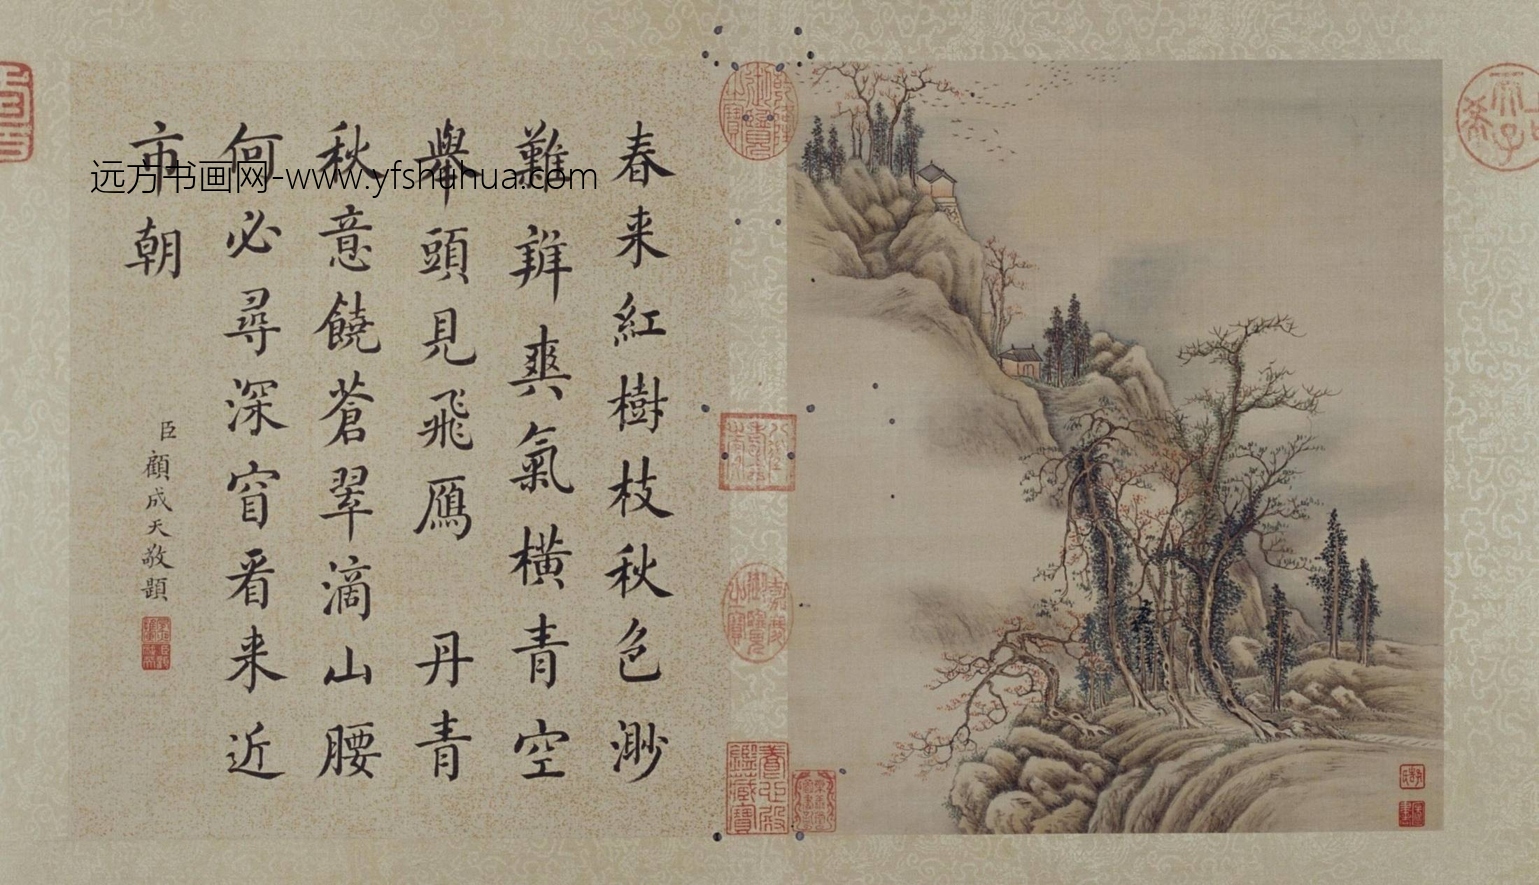 春来紅樹枝秋色渺
難辨爽氣橫青空
舉頭見飛鴈 丹青
秋意饒蒼翠滴山腰
何必尋深窅看来近
市朝
臣顧成天敬題
远方书画网-www.yfshuhua.com